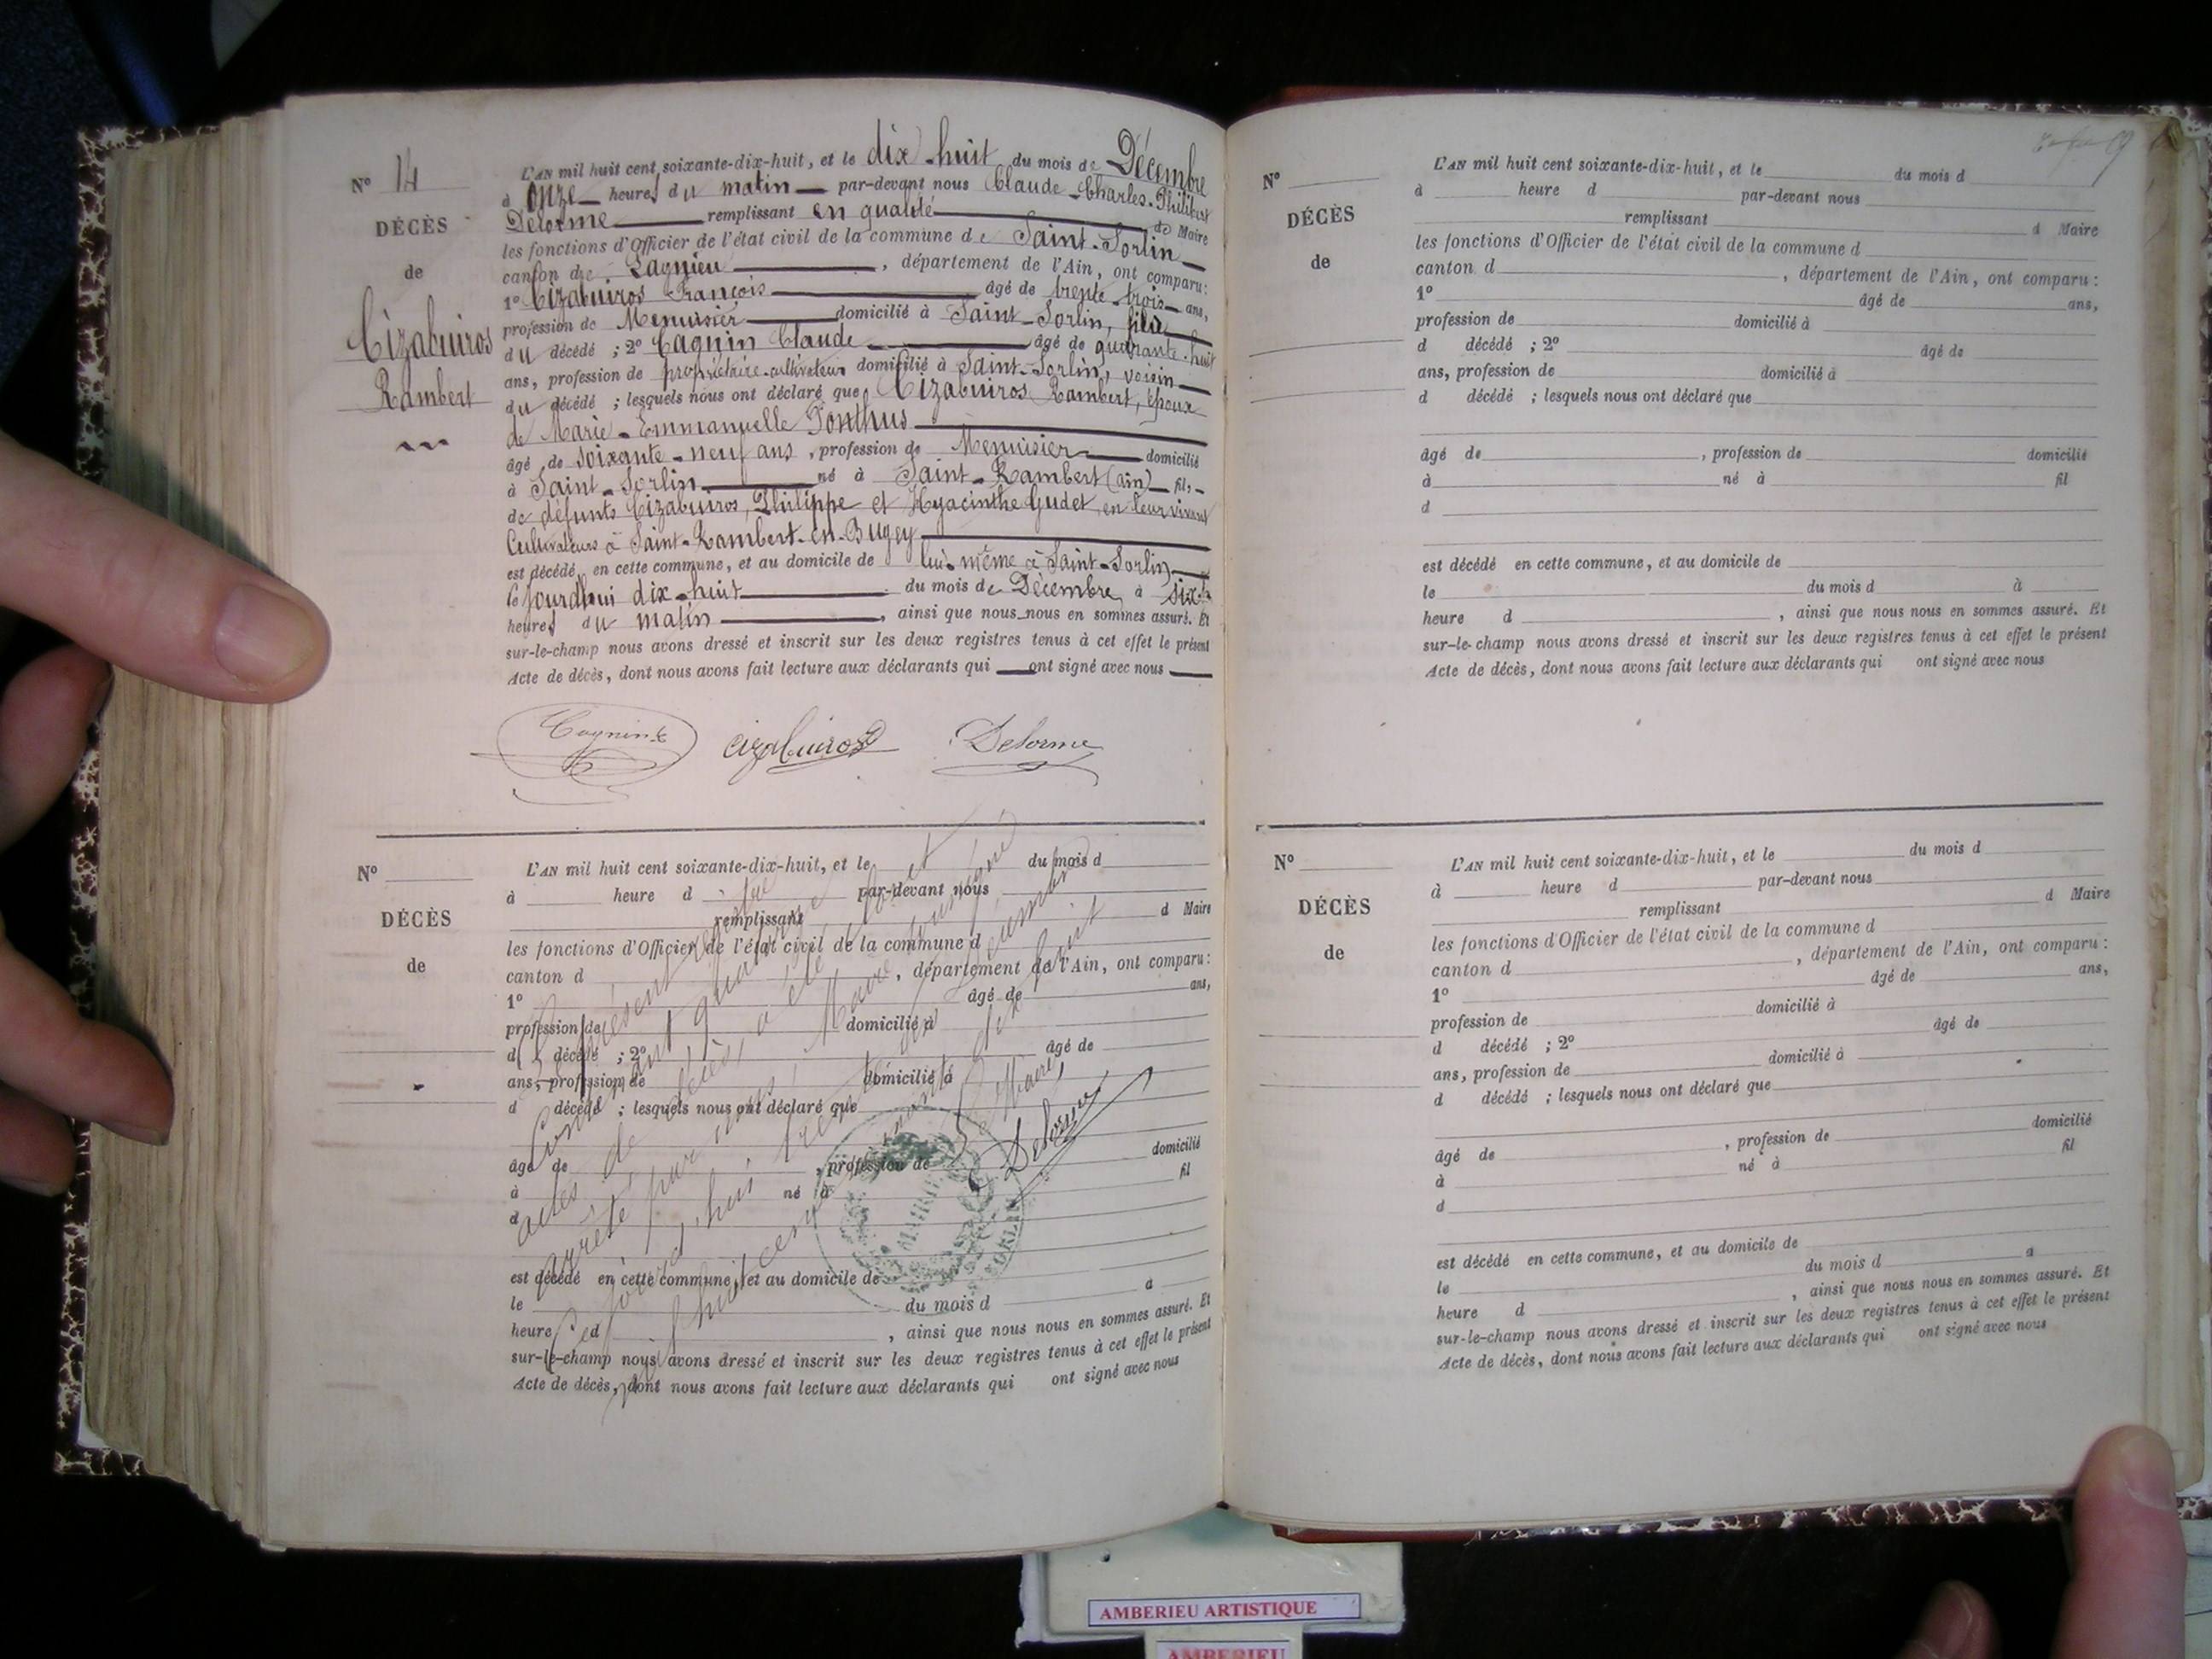 N° 14
DÉCÈS
de
Cizabuiros
Rambert
L'AN mil huit cent soixante-dix-huit, et le dix-huit du mois de Décembre
à onze heures du matin par-devant nous Claude-Charles-Philibert
Delorme remplissant en qualité de Maire
les fonctions d'Officier de l'état civil de la commune de Saint-Sorlin
canton de Lagnieu, département de l'Ain, ont comparu:
1° Cizabuiros François âgé de trente-trois ans,
profession de Menuisier domicilié à Saint-Sorlin, fils
du décédé ; 2° Cagnin Claude âgé de quarante-huit
ans, profession de propriétaire-cultivateur domicilié à Saint-Sorlin, voisin
du décédé ; lesquels nous ont déclaré que Cizabuiros Rambert, époux
de Marie-Emmanuelle Ponthus
âgé de soixante-neuf ans, profession de Menuisier domicilié
à Saint-Sorlin né à Saint-Rambert (ain) fils
de défunts Cizabuiros Philippe et Hyacinthe Gudet, en leur vivant
Cultivateurs à Saint-Rambert-en-Bugey
est décédé en cette commune, et au domicile de lui-même à Saint-Sorlin
le jourd'hui dix-huit du mois de Décembre, à six
heures du matin, ainsi que nous nous en sommes assuré. Et
sur-le-champ nous avons dressé et inscrit sur les deux registres tenus à cet effet le présent
Acte de décès, dont nous avons fait lecture aux déclarants qui ont signé avec nous
Cagnin Cizabuiros Delorme
N°
DÉCÈS
de
L'AN mil huit cent soixante-dix-huit, et le du mois d
à heure d par-devant nous
remplissant d Maire
les fonctions d'Officier de l'état civil de la commune d
canton d , département de l'Ain, ont comparu:
1° âgé de ans,
profession de domicilié à
d décédé ; 2° âgé de
ans, profession de domicilié à
d décédé ; lesquels nous ont déclaré que
âgé de , profession de domicilié
à né à fil
d
est décédé en cette commune, et au domicile de
le du mois d à
heure d , ainsi que nous nous en sommes assuré. Et
sur-le-champ nous avons dressé et inscrit sur les deux registres tenus à cet effet le présent
Acte de décès, dont nous avons fait lecture aux déclarants qui ont signé avec nous
Le présent registre
contenant quatorze
actes de décès, a été clos et
arrêté par nous, Maire soussigné
cejourd'hui, trente un Décembre
mil huit cent soixante dix huit
Le Maire,
Delorme
N°
DÉCÈS
de
L'AN mil huit cent soixante-dix-huit, et le du mois d
à heure d par-devant nous
remplissant d Maire
les fonctions d'Officier de l'état civil de la commune d
canton d , département de l'Ain, ont comparu:
1° âgé de ans,
profession de domicilié à
d décédé ; 2° âgé de
ans, profession de domicilié à
d décédé ; lesquels nous ont déclaré que
âgé de , profession de domicilié
à né à fil
d
est décédé en cette commune, et au domicile de
le du mois d à
heure d , ainsi que nous nous en sommes assuré. Et
sur-le-champ nous avons dressé et inscrit sur les deux registres tenus à cet effet le présent
Acte de décès, dont nous avons fait lecture aux déclarants qui ont signé avec nous
N°
DÉCÈS
de
L'AN mil huit cent soixante-dix-huit, et le du mois d
à heure d par-devant nous
remplissant d Maire
les fonctions d'Officier de l'état civil de la commune d
canton d , département de l'Ain, ont comparu:
1° âgé de ans,
profession de domicilié à
d décédé ; 2° âgé de
ans, profession de domicilié à
d décédé ; lesquels nous ont déclaré que
âgé de , profession de domicilié
à né à fil
d
est décédé en cette commune, et au domicile de
le du mois d à
heure d , ainsi que nous nous en sommes assuré. Et
sur-le-champ nous avons dressé et inscrit sur les deux registres tenus à cet effet le présent
Acte de décès, dont nous avons fait lecture aux déclarants qui ont signé avec nous
AMBERIEU ARTISTIQUE
AMBERIEU